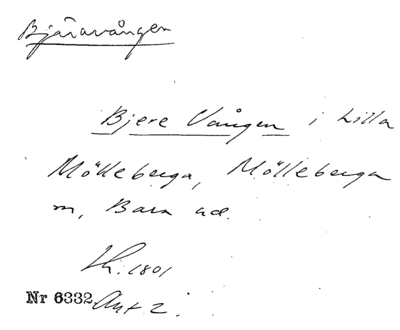 Bjäravången
Bjere Vången i Lilla
Mölleberga, Mölleberga
sn, Bara hd.
Lh. 1801
Nr 6332 Akt 2.